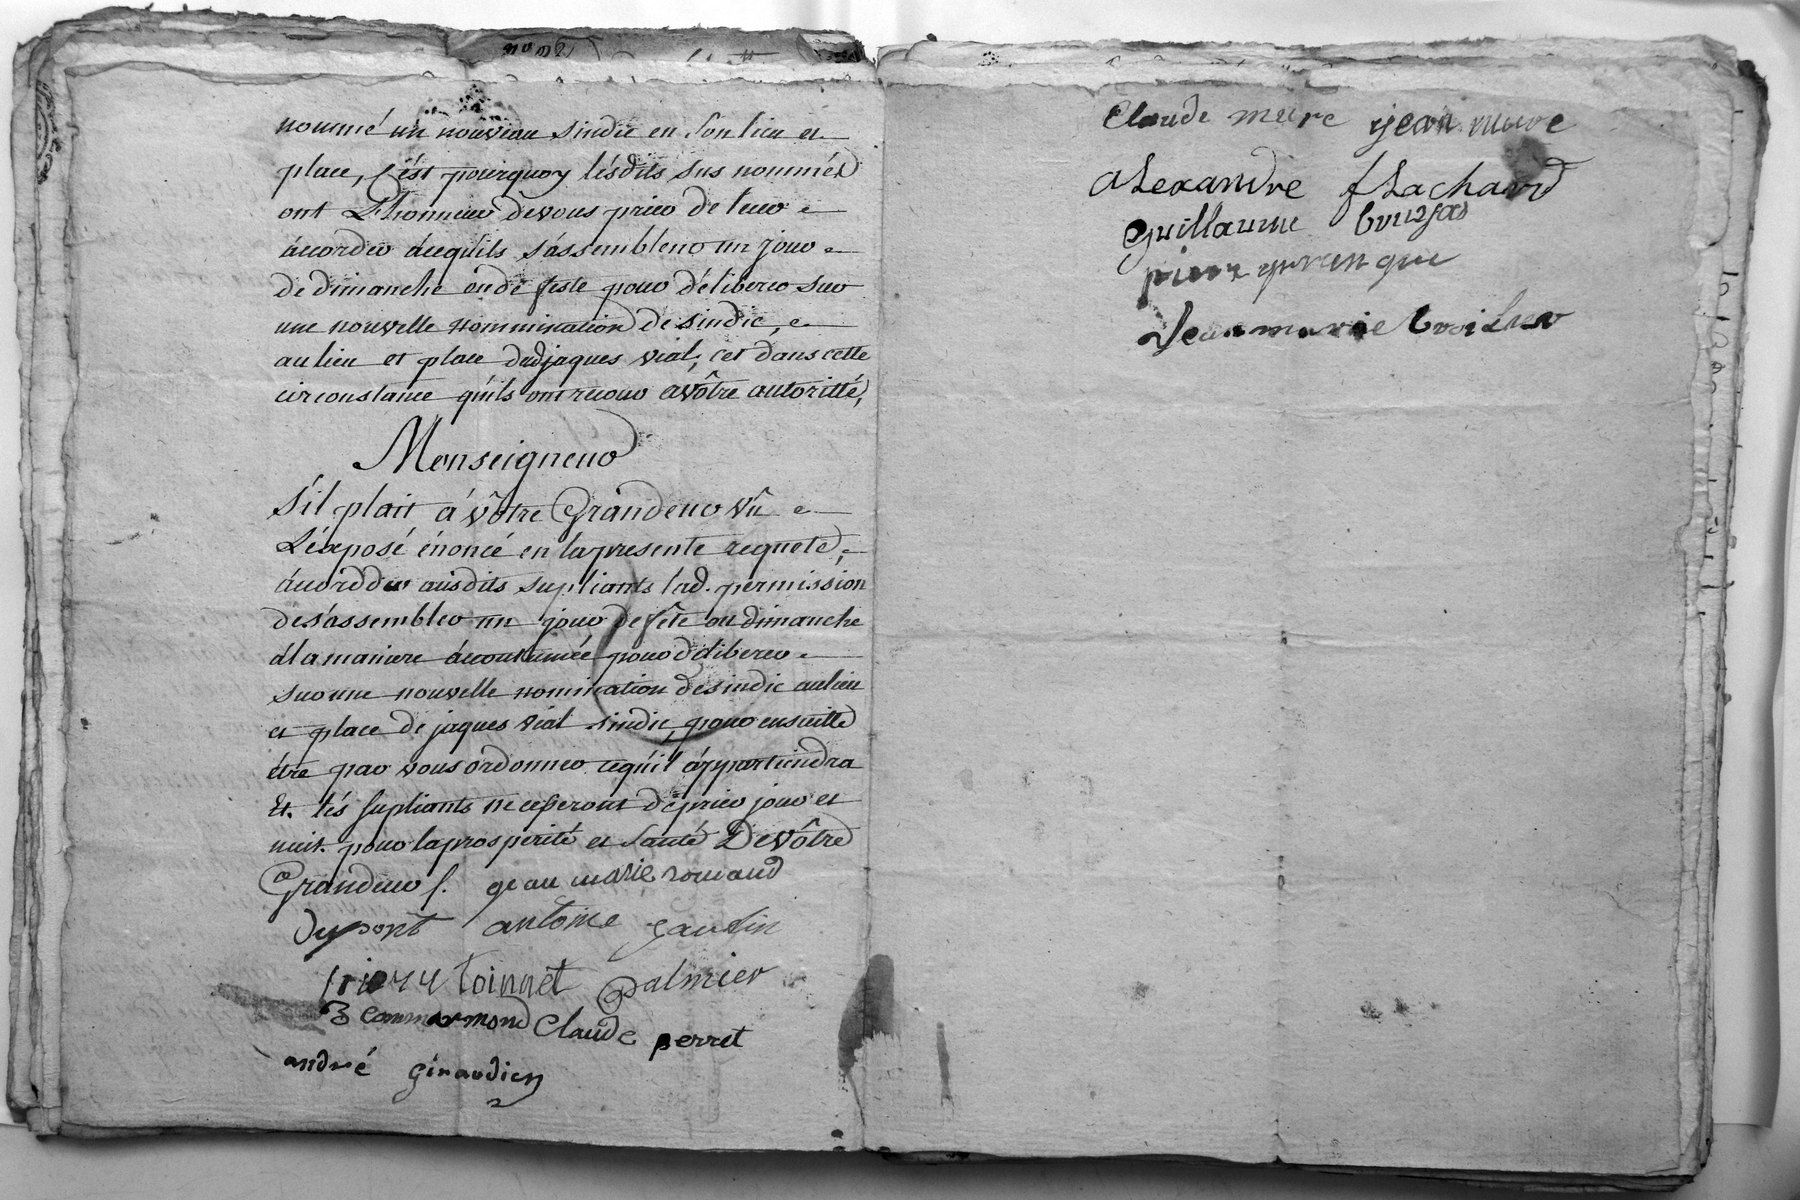 nommé un nouveau sindic en son lieu et
place, C'ést pourquoy lésdits sus nommés
ont L'honneur devous prier de leur
àcorder àcequ'ils s'assembleront un jour
de dimanche oude feste pour déliberer sur
une nouvelle nommination de sindic,
au lieu et place dudjaques vial, cet dans cette
circonstance qu'ils ont recour avôtre autoritté,
Monseigneur
S'il plait à vôtre Grandeur vû
L'éxposé énoncé en lapresente requete,
àcordder ausdits supliants lad. permission
des'assembler un jour de fête ou dimanche
àlamaniere àcoutumée pour déliberer
sur une nouvelle nomination desindic aulieu
et place de jaques vial sindic, pour ensuitte
être par vous ordonner cequ'il àppartiendra
Et. lés supliants ne cesseront déprier jour et
nuit. pour laprospérité et santé Devôtre
Grandeur f. jean marie romand
dupont antoine gaudin
toinnet Palmier
jean marmond Claude perret
andré giraudien
Claude mure jean mure
alexandre flachard
guillaume
pierre
Jean marie